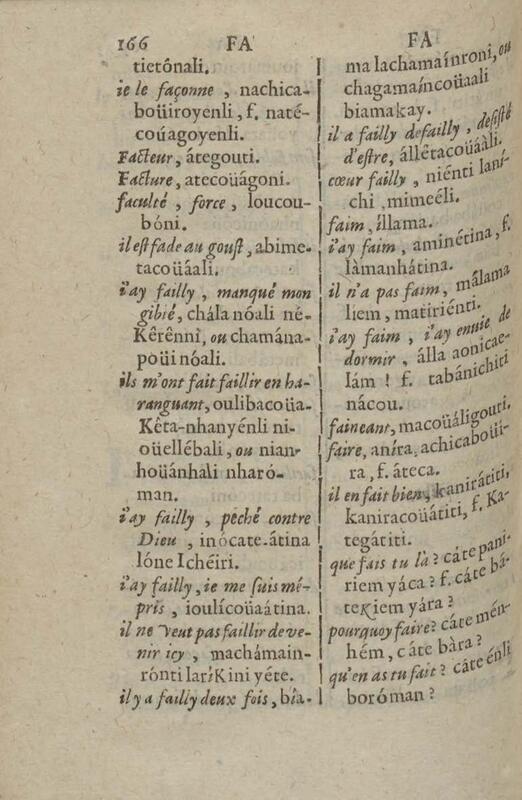 166 FA FA
tietônali.
ie le façonne, nachica-
boüiroyenli, f. naté-
coúagoyenli.
Facteur, átegouti.
Facture, atecoüágoni.
faculté, force, loucou-
bóni.
il est fade au goust, abime-
tacoüáali.
i'ay failly, manqué mon
gibié, chála nóali né-
Kêrênni, ou chamána-
poüi nóali.
ils m'ont fait faillir en ha-
ranguant, oulibacoüa-
Kêta-nhanyénli ni-
oüellébali, ou nian-
hoüánhali nharó-
man.
i'ay failly, peché contre
Dieu, inócate-átina
lóne Ichéiri.
i'ay failly, ie me suis mé-
pris, ioulícoüaátina.
il ne veut pas faillir de ve-
nir icy, machámain-
rónti lariKini yéte.
il y a failly deux fois, bía-
ma lachamaínroni, ou
chagamaíncoüaali
biamakay.
il a failly defailly, desisté
d'estre, állêtacoüáàli.
cœur failly, niénti laní-
chi, mimeéli.
faim, íllama.
i'ay faim, aminétina, f.
làmanhátina.
il n'a pas faim, málama
liem, matiriénti.
i'ay faim, i'ay enuie de
dormir, álla aonicae-
Iám! f. tabánichiti
nácou.
faineant, macoüáligouti.
faire, aníra, achicaboüi-
ra, f. áteca.
il en fait bien, kanirátiti,
kaniracoüátiti, f. Ka-
tegátiti.
que fais tu là? cáte pani-
riem yáca? f. cáte bá-
teKiem yára?
pourquoy faire? cáte mén-
hém, cáte bàra?
qu'en as tu fait? cáte énli
boróman?